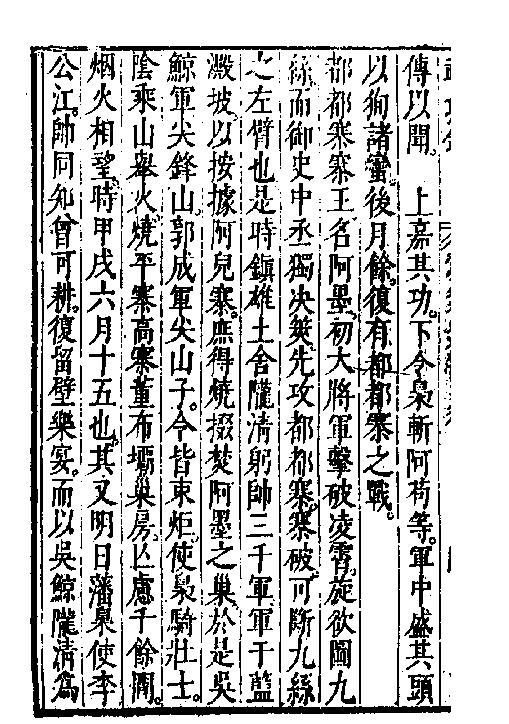 傳以聞。　上嘉其功。下令梟斬阿苟等。軍中盛其頭
以徇諸蠻。後月餘。復有都都寨之戰。
都都寨寨王名阿墨。初大將軍擊破凌霄。旋欲圖九
絲。而御史中丞獨决筴。先攻都都寨。寨破。可斷九絲
之左臂也。是時鎮雄土舍隴清躬帥三千軍。軍于藍
澱坡。以按據阿兒寨。庶得燒掇焚阿墨之巢。於是吳
鯨軍尖鋒山。郭成軍尖山子。令皆束炬。使梟騎壯士。
陰乘山舉火。燒平寨高寨董布壩巢房。亡慮千餘閒。
烟火相望。時甲戌六月十五也。其又明日藩臬使李
公江。帥同知曾可耕。復留壁樂宴。而以吳鯨隴清爲